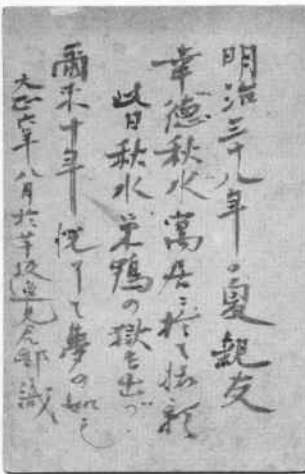 明治三十八年の夏親友
幸徳秋水寓居に於て撮影
此日秋水巣鴨の獄を出づ
爾来十年恍として夢の如し
大正六年八月於 逸見 識